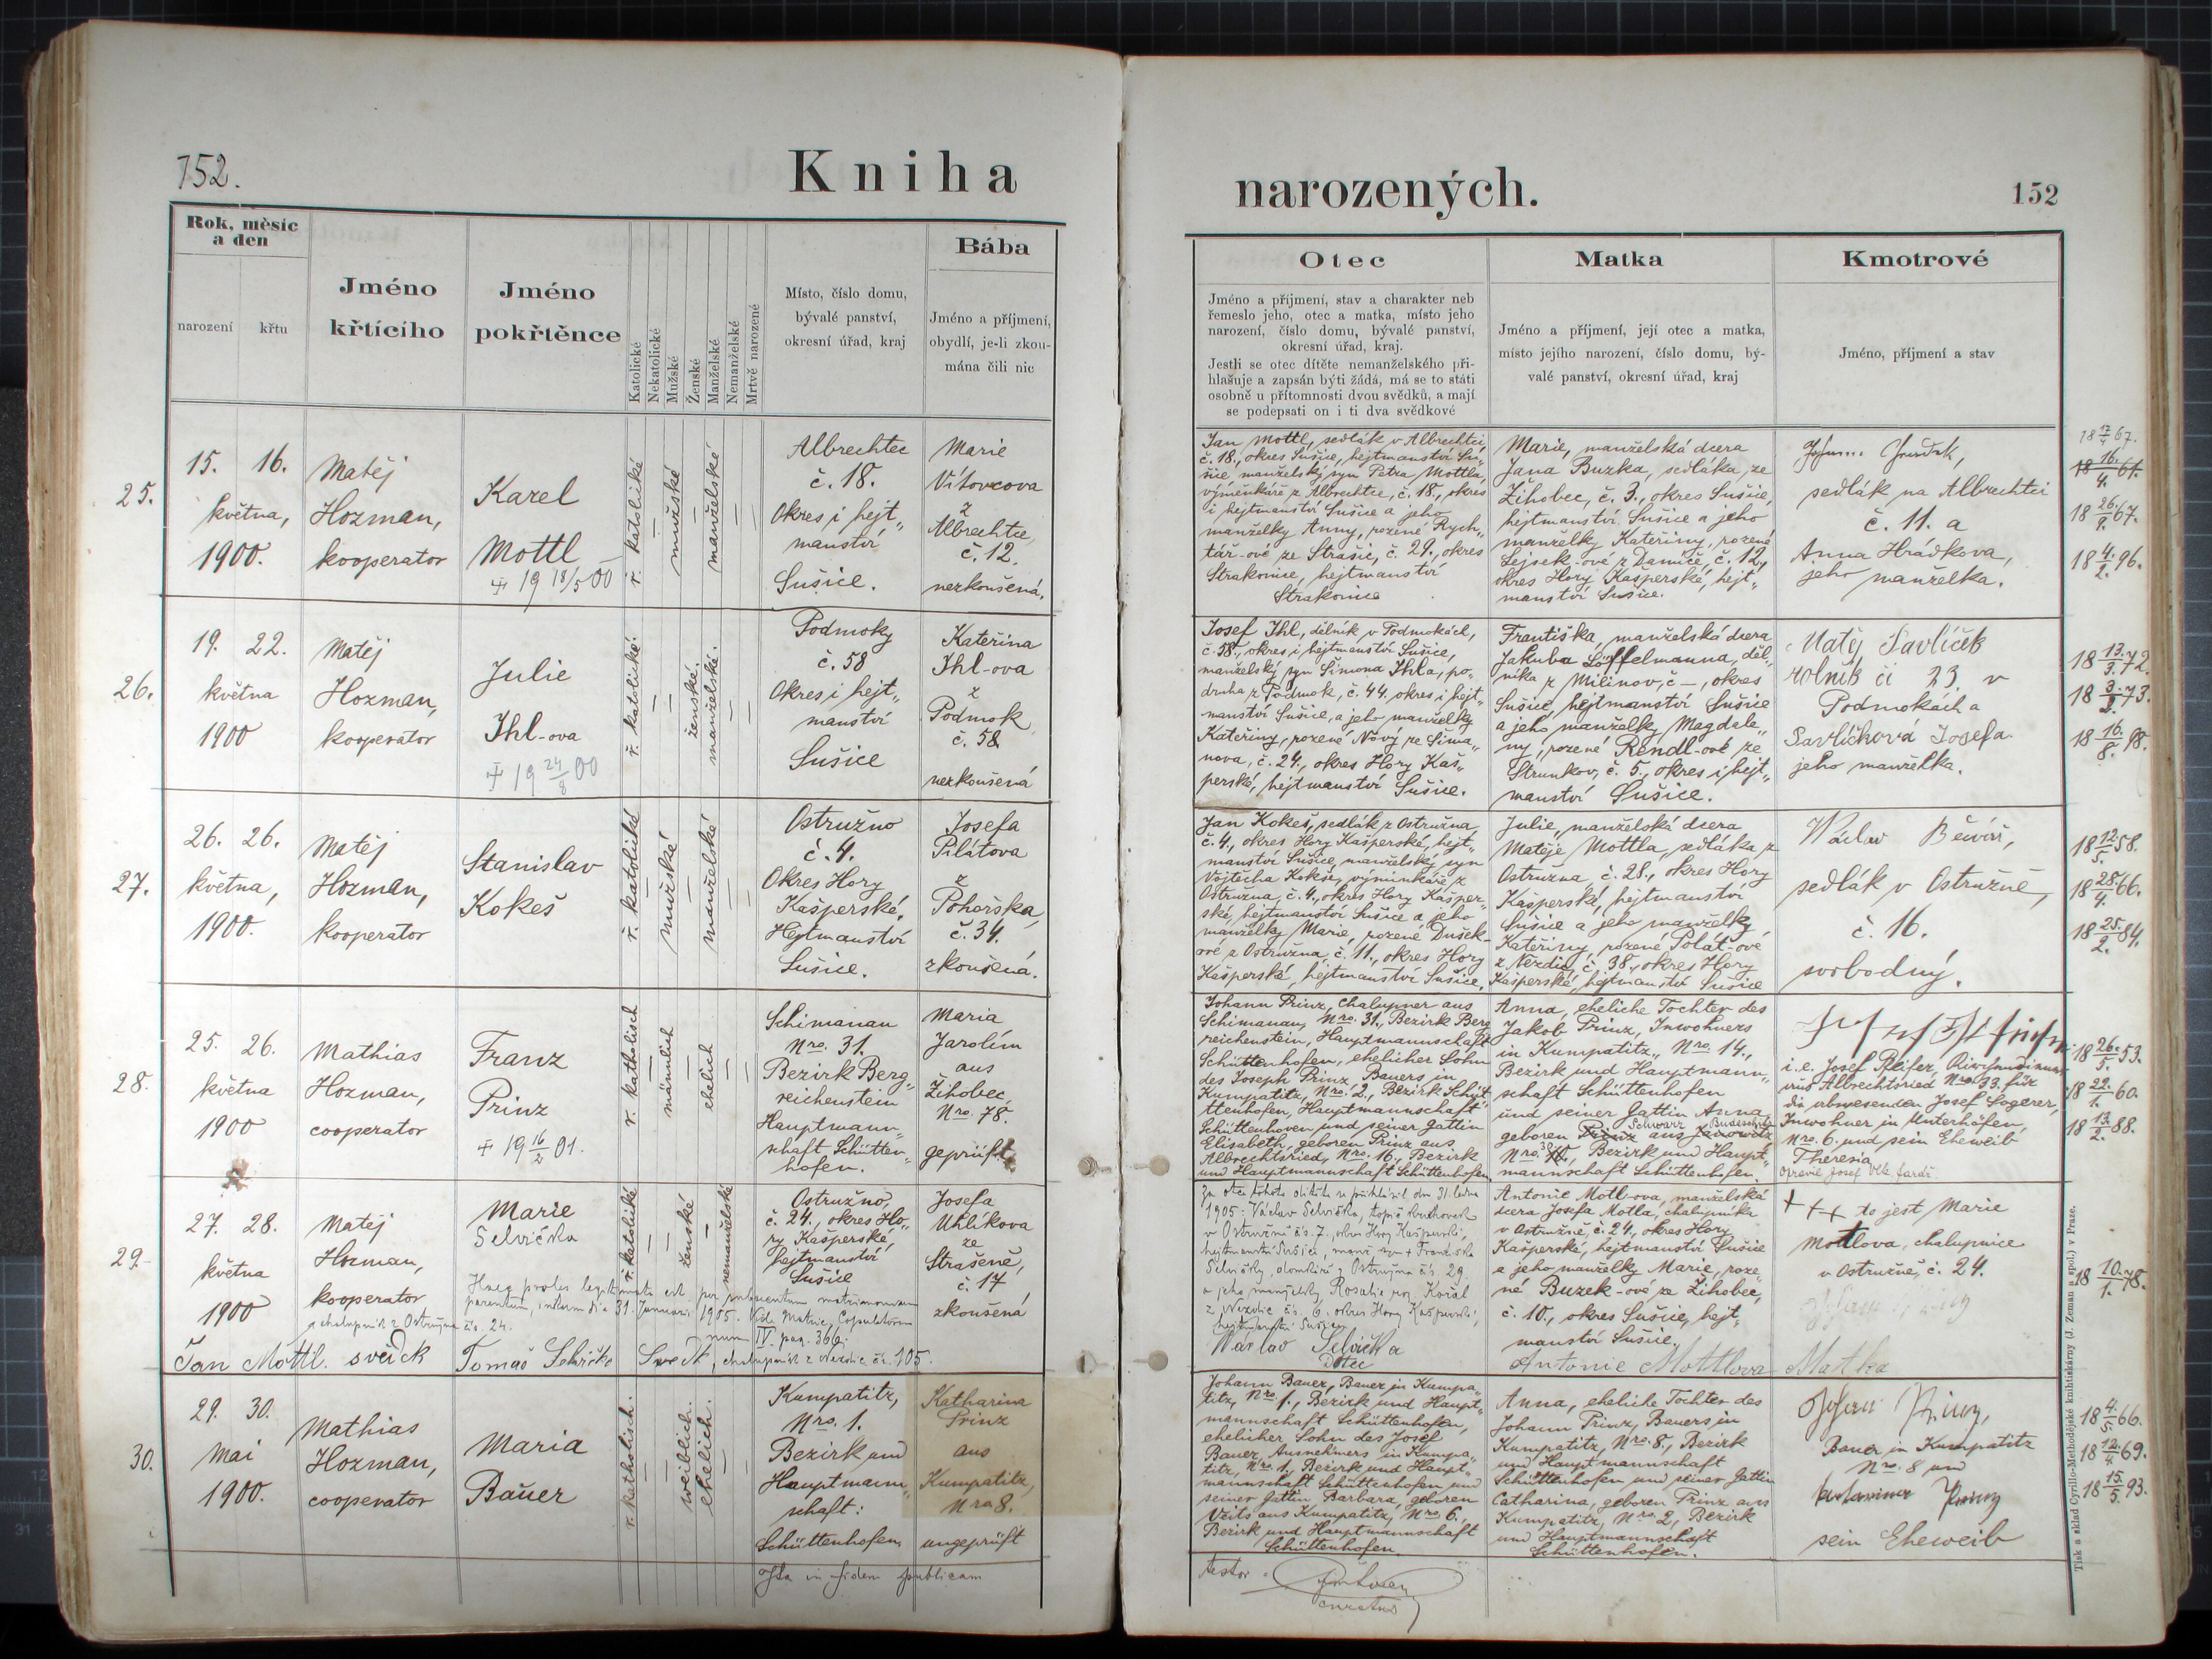 152.
Kniha
narozených.
152
Rok, měsíc
a den
narození
křtu
Jméno
křtícího
Jméno
pokřtěnce
Katolické
Nekatolické
Mužské
Ženské
Manželské
Nemanželské
Mrtvě narozené
Místo, číslo domu,
bývalé panství,
okresní úřad, kraj
Bába
Jméno a příjmení,
obydlí, je-li zkou-
mána čili nic
Otec
Jméno a příjmení, stav a charakter neb
řemeslo jeho, otec a matka, místo jeho
narození, číslo domu, bývalé panství,
okresní úřad, kraj.
Jestli se otec dítěte nemanželského při-
hlašuje a zapsán býti žádá, má se to státi
osobně u přítomnosti dvou svědků, a mají
se podepsati on i ti dva svědkové
Matka
Jméno a příjmení, její otec a matka,
místo jejího narození, číslo domu, bý-
valé panství, okresní úřad, kraj
Kmotrové
Jméno, příjmení a stav
25.
15. 16.
května,
1900.
Matěj
Hozman,
kooperator
Karel
Mottl
+ 19 18/5 00
ř. katolické
mužské
manželské
Albrechtec
č. 18.
Okres i hejt„
manství
Sušice.
Marie
Vítovcova
z
Albrechtec
č. 12.
nezkoušená.
Jan Mottl, sedlák v Albrechtci,
č. 18., okres Sušice, hejtmanství Su„
šice manželský syn Petra Mottla,
výměnkáře z Albrechtce, č. 18., okres
i hejtmanství Sušice a jeho
manželky Anny, rozené Rych„
tář-ové ze Strašic, č. 29., okres
Strakonice, hejtmanství
Strakonice
Marie, manželská dcera
Jana Buzka, sedláka, ze
Žihobec, č. 3., okres Sušice,
hejtmanství Sušice a jeho
manželky Kateřiny, rozené
Lejsek-ové z Damíče, č. 12.,
okres Hory Kašperské, hejt„
manství Sušice.
sedlák na Albrechtci
č. 11. a
Anna Hrádkova,
jeho manželka.
18 17/4 67.
18 16/4 61.
18 26/8 67.
18 4/2 96.
26.
19. 22.
května
1900
Matěj
Hozman,
kooperator
Julie
Ihl-ova
+ 19 24/8 00
ř. katolické.
ženské.
manželské.
Podmoky
č. 58
Okres i hejt„
manství
Sušice
Kateřina
Ihl-ova
z
Podmok
č. 58
nezkoušená
Josef Ihl, dělník v Podmokách,
č. 58., okres i hejtmanství Sušice,
manželský syn Šimona Ihla, po„
druha z Podmok, č. 44, okres i hejt„
manství Sušice, a jeho manželky
Kateřiny, rozené Nový ze Šima„
nova, č. 24., okres Hory Kaš„
perské, hejtmanství Sušice.
Františka, manželská dcera
Jakuba Löffelmanna, děl„
níka z Milínov, č —, okres
Sušice, hejtmanství Sušice
a jeho manželky Magdale„
ny, rozené Rendl-ové ze
Strunkov, č. 5., okres i hejt„
manství Sušice.
Matěj Savlíček
rolník či 23. v
Podmokách a
Savlíčková Josefa
jeho manželka.
18 13/3 72.
18 3/3 73.
18 16/8 98.
27.
26. 26.
května,
1900.
Matěj
Hozman,
kooperator
Stanislav
Kokeš
ř. katolické
mužské
manželské
Ostružno
č. 4.
Okres Hory
Kašperské,
Hejtmanství
Sušice.
Josefa
Pilátova
z
Pohorška,
č. 34.
zkoušená.
Jan Kokeš, sedlák z Ostružna
č. 4., okres Hory Kašperské, hejt„
manství Sušice, manželský syn
Vojtěcha Kokše, výminkáře z
Ostružna, č. 4., okres Hory Kašper„
ské, hejtmanství Sušice a jeho
manželky Marie, rozené Dušek-
ové z Ostružna, č. 11., okres Hory
Kašperské, hejtmanství Sušice.
Julie, manželská dcera
Matěje Mottla, sedláka z
Ostružna, č. 28., okres Hory
Kašperské, hejtmanství
Sušice a jeho manželky
Kateřiny, rozené Polát-ové
z Nezdic, č. 38., okres Hory
Kašperské, hejtmanství Sušice
Václav
sedlák v Ostružně,
č. 16.
svobodný.
18 12/5 58.
18 28/4 66.
18 25/2 84.
28.
25. 26.
května
1900
Mathias
Hozman,
cooperator
Franz
Prinz
+ 19 16/2 01.
r. katholisch
männlich
ehelich
Schimanau
Nro. 31.
Bezirk Berg„
reichenstein
Hauptmann„
schaft Schütten„
hofen.
Maria
Jarolím
aus
Žihobec,
Nro. 78.
geprüft
Johann Prinz, Chalupner aus
Schimanau, Nro. 31., Bezirk Berg
reichenstein, Hauptmannschaft
Schüttenhofen, ehelicher Sohn
des Joseph Prinz, Bauers in
Kumpatitz, Nro. 2., Bezirk Schüt„
ttenhofen, Hauptmannschaft
Schüttenhoven und seiner Gattin
Elisabeth, geboren Prinz aus
Albrechtsried, Nro. 16., Bezirk
und Hauptmannschaft Schüttenhofen
Anna, eheliche Tochter des
Jakob Prinz, Inwohners
in Kumpatitz, Nro. 14.,
Bezirk und Hauptmann„
schaft Schüttenhofen
und seiner Gattin Anna,
Schwarz
geboren Prinz aus Janowitz
Nro. 30, Bezirk und Haupt„
mannschaft Schüttenhofen.
i. e. Josef Pfeifer,
aus Albrechtsried Nro. 33. für
die abwesenden Josef Sagerer,
Inwohner in Unterhöfen,
Nro. 6. und sein Eheweib
Theresia
Opravil Josef Vlk farář.
18 26/5 53.
18 22/1 60.
18 13/2 88.
29.
27. 28.
května
1900
Matěj
Hozman,
kooperator
Marie
Selvička
ř. katolické
ženské
nemanželské
Ostružno,
č. 24., okres Ho„
ry Kašperské,
hejtmanství
Sušice
Josefa
Uhlíkova
ze
Strašeně,
č. 17
zkoušená
Haec proles legitimata est per subsequentum matrimonium
parentum, initum die 31. Januarii 1905. Vide Matric. Copulatorum
num IV. pag. 366.
a chalupník z Ostružna čs. 24.
Jan Mottl. svědek
Tomáš Selvička Svědk, chalupník z Nezdic čs. 105.
Za otce tohoto dítěte se přihlásil dne 31. ledna
1905: Václav Selvička,
v Ostružně čs. 7., okres Hory Kašperské,
hejtmanství Sušice, manž. syn + Františka
Selvičky, domkáře z Ostružna čs. 29
a jeho manželky Rosalie roz. Korál
z Nezdic čs. 6. okres Hory Kašperské,
hejtmanství Sušice.
Václav Selvička
Otec
Antonie Motl-ova, manželská
dcera Josefa Motla, chalupníka
v Ostružně, č. 24., okres Hory
Kašperské, hejtmanství Sušice
a jeho manželky Marie, roze„
né Buzek-ové ze Žihobec,
č. 10., okres Sušice, hejt„
manství Sušice.
Antonie Mottlova Matka
+++ to jest Marie
Mottlova, chalupnice
v Ostružně, č. 24.
18 10/1 78.
30.
29. 30.
Mai
1900.
Mathias
Hozman,
cooperator
Maria
Bauer
r. katholisch.
weiblich.
ehelich.
Kumpatitz,
Nro. 1.
Bezirk und
Hauptmann„
schaft:
Schüttenhofen
Katharina
Prinz
aus
Kumpatitz,
Nro 8.
ungeprüft
Johann Bauer, Bauer in Kumpa„
titz, Nro. 1., Bezirk und Haupt„
mannschaft Schüttenhofen,
ehelicher Sohn des Josef
Bauer, Ausnehmers in Kumpa„
titz, Nro. 1., Bezirk und Haupt„
mannschaft Schüttenhofen und
seiner Gattin Barbara, geboren
Veits aus Kumpatitz, Nro. 6.,
Bezirk und Hauptmannschaft
Schüttenhofen.
Anna, eheliche Tochter des
Johann Prinz, Bauers in
Kumpatitz, Nro. 8., Bezirk
und Hauptmannschaft
Schüttenhofen und seiner Gattin
Catharina, geboren Prinz aus
Kumpatitz, Nro. 2., Bezirk
und Hauptmannschaft
Schüttenhofen.
Johann Prinz,
Bauer in Kumpatitz
Nro. 8 und
Katharina Prinz
sein Eheweib
18 4/5 66.
18 12/4 69.
18 15/5 93.
Ita in fidem publicam
testor:
Tisk a sklad Cyrillo-Methodějské knihtiskárny (J. Zeman a spol.) v Praze.